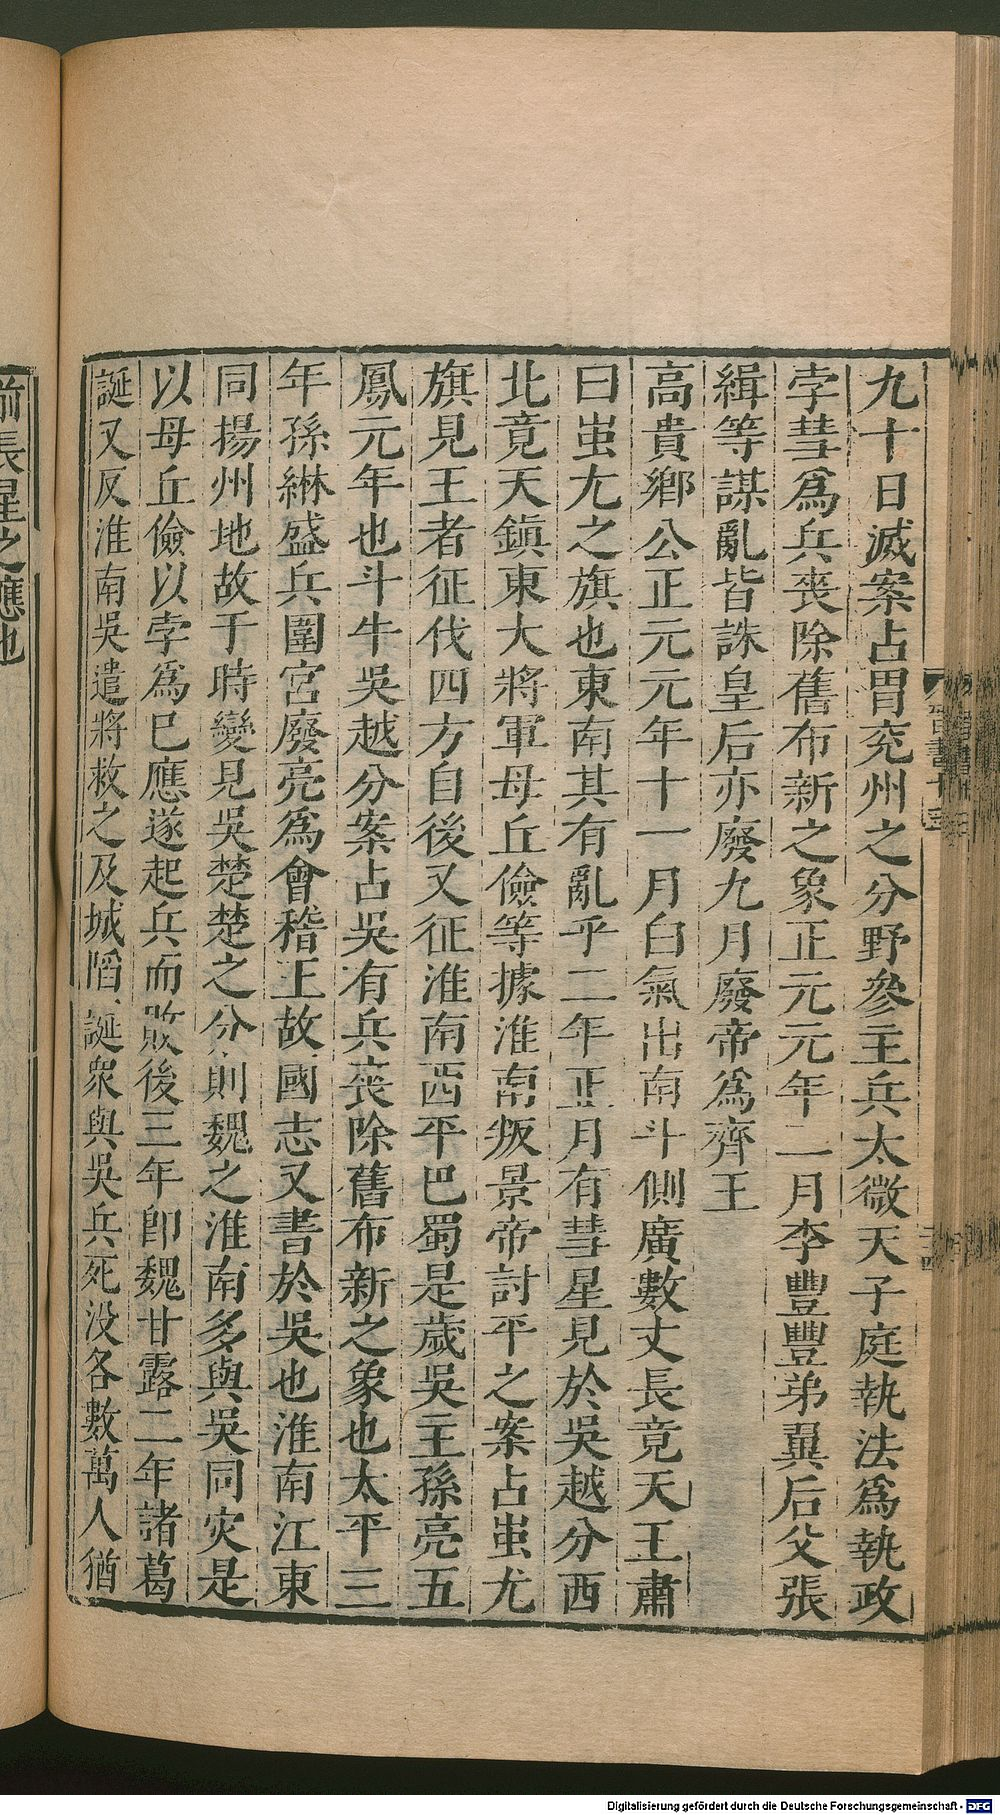 九十日滅案占胃兖州之分野參主兵太微天子庭執法爲執政
孛彗爲兵喪除舊布新之象正元元年二月李豐豐弟翼后父張
緝等謀亂皆誅皇后亦廢九月廢帝爲齊王
高貴鄉公正元元年十一月白氣出南斗側廣數丈長竟天王肅
曰蚩尤之旗也東南其有亂乎二年正月有彗星見於吳越分西
北竟天鎮東大將軍母丘儉等據淮南叛景帝討平之案占蚩尤
旗見王者征伐四方自後又征淮南西平巴蜀是歲吳主孫亮五
鳳元年也斗牛吳越分案占吳有兵喪除舊布新之象也太平三
年孫綝盛兵圍宮廢亮爲會稽王故國志又書於吳也淮南江東
同揚州地故于時變見吳楚楚之分則魏之淮南多與吳同灾是
以母丘儉以孛爲已應遂起兵而敗後三年即魏甘露二年諸葛
誕又反淮南吳遣將救之及城陷誕衆與吳兵死没各數萬人猶
前長星之應也
Digitalisierung gefördert durch die Deutsche Forschungsgemeinschaft - DFG